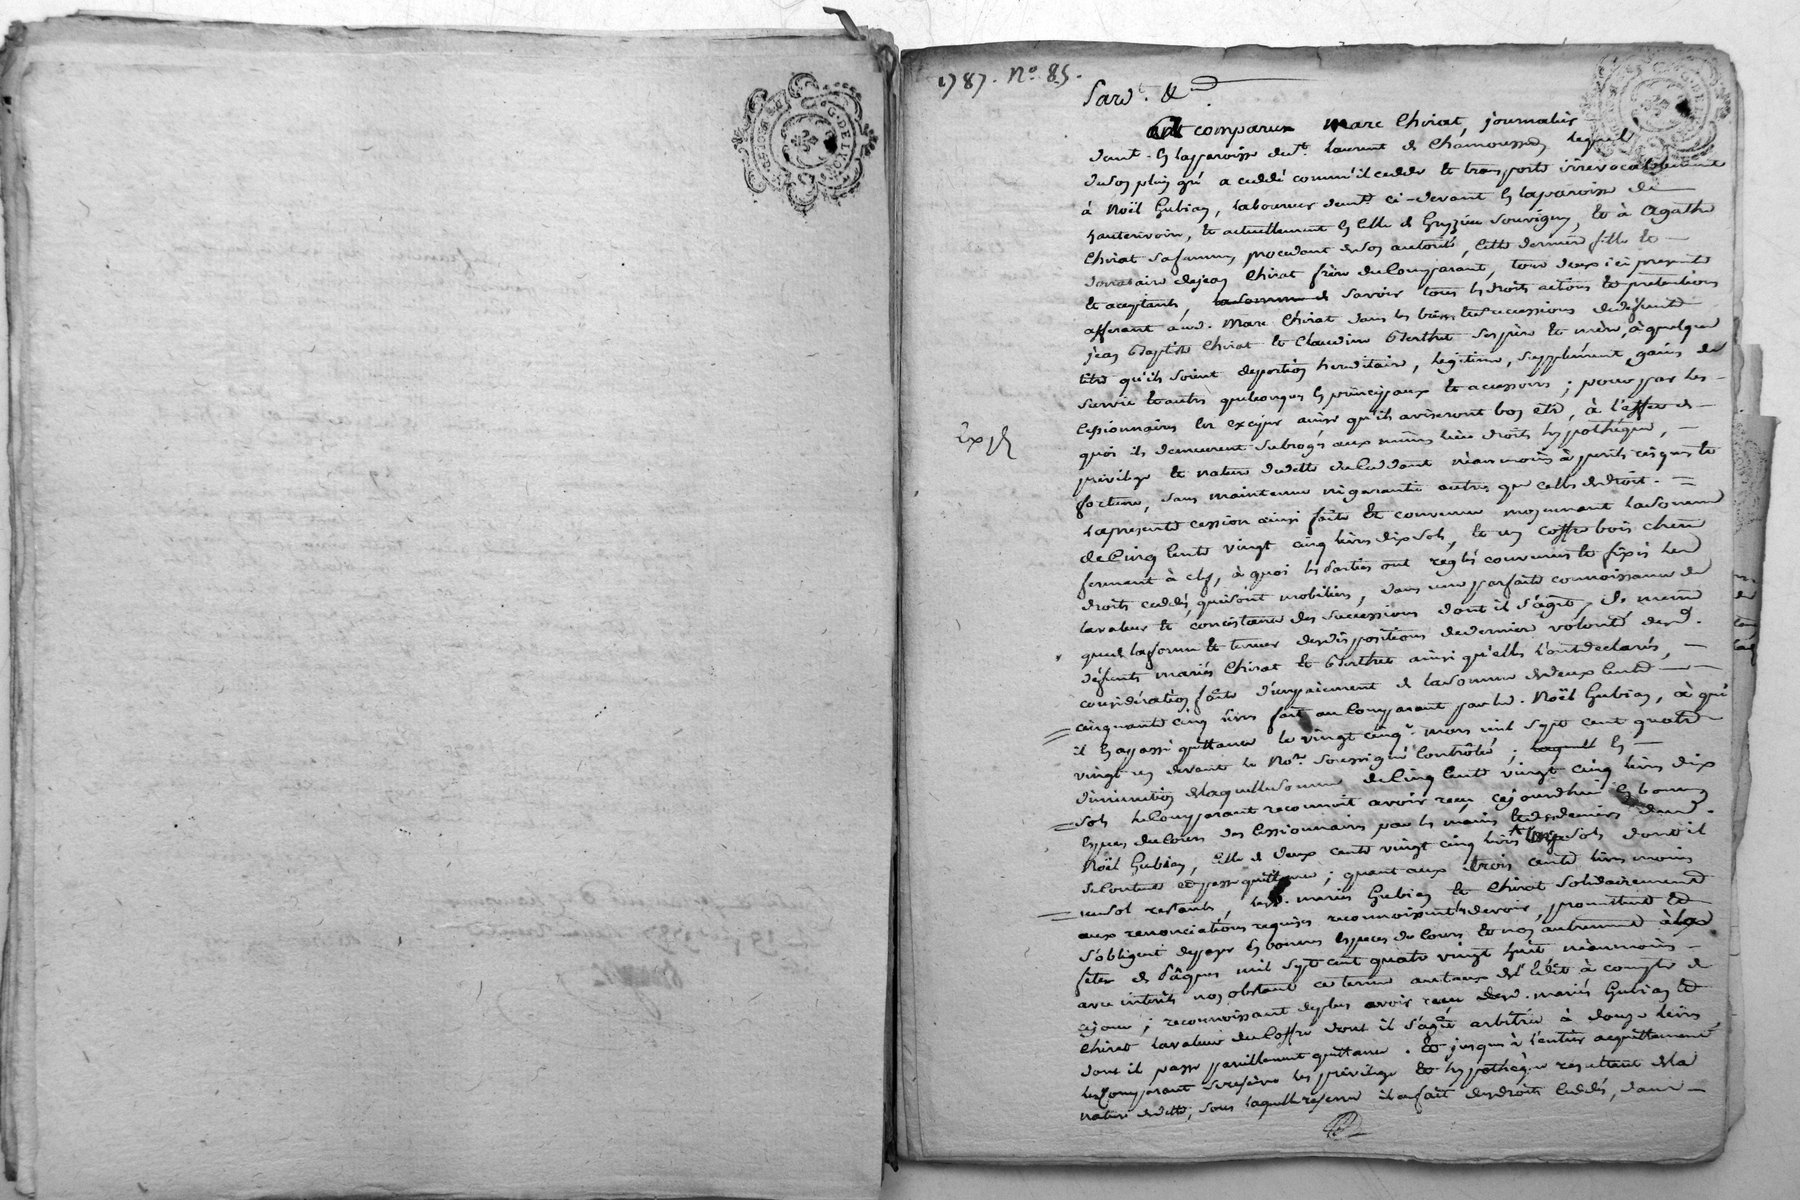 1787. N.o 85.
Pard.t &c.
est comparu Marc Chirat, journalier
demt. en laparoisse de st. Laurent de Chamousset, lequel
de son plein gré a ceddé comm'il cedde et transporte irrévocablement
à Noël Gubian, laboureur demt. ci-devant en laparoisse de
hauterivoire, et actuellement en celle de Grezieu Souvigny, et à Agathe
Chirat safemme, procedant de son autorité, cette derniere fille et
donataire dejean Chirat frère du Comparant, tous deux ici presents
et aceptants, lasomme de savoir tous les droits actions et pretentions
afferant aud. Marc Chirat dans les biens et successions de défunts
jean Baptiste Chirat et Claudine Berthet ses père et mère, à quelque
titre qu'ils soient deportion hereditaire, legitime, supplément, gains de
survie et autres quelconques en principaux et accessoires; pour par les
cessionnaires les exiger ainsi qu'ils aviseront bon etre, à l'effet de
quoi ils demeurent subrogés aux mêmes lieu droits hypothéque,
privilege et nature de dette du Ceddant néanmoins à perils risques et
fortune, sans maintenue ni garantie autres que celles de droit.
expé
Laprésente cession ainsi faite et convenue moyennant lasomme
de Cinq Cents vingt cinq livres dix sols, et un coffre bois chêne
fermant à clef, à quoi les Parties ont reglés convenus et fixés les
droits ceddés, qui sont mobiliers, dans une parfaite connoissance de
lavaleur et consistance des successions dont il s'agit, de meme
que de laforme et teneur des dispositions de derniere volonté desd.
défunts mariés Chirat et Berthet ainsi qu'elles l'ont declarés,
considération faite d'un paiement de lasomme de deux Cents
cinquante cinq livres fait au Comparant par led. Noël Gubian, à qui
il en a passé quittance le vingt cinq mars mil sept cent quatre
vingt un devant le No.re soussigné Contrôlée; laquelle en
diminution de laquelle somme de Cinq Cents vingt cinq livres dix
sols le Comparant reconnoit avoir reçu cejourdhui en bonnes
especes du Cours des Cessionnaires par les mains et deniers dud.
Noël Gubian, Celle de deux cents vingt cinq livres onze sols dont il
se contente et passe quittance; quant aux trois cents livres moins
un sol restants, lesd. mariés Gubian et Chirat solidairement
aux renonciations requises reconnoissent les devoir, promettent et
s'obligent de payer en bonnes especes de Cours et non autrement à la
fêtes de Pâques mil sept cent quatre vingt huit néanmoins
avec intérêts non obstant ce terme au taux de l'Edit à compter de
cejour; reconnoissant deplus avoir reçu desd. mariés Gubian et
Chirat lavaleur du Coffre dont il s'agit arbitrée à douze livres
dont il passe pareillement quittance. Et jusques à l'entier acquittement
le Comparant se reserve les privilege et hypothèque resultant de la
nature de dette, sous laquelle reserve il a fait des droits Ceddés, dame